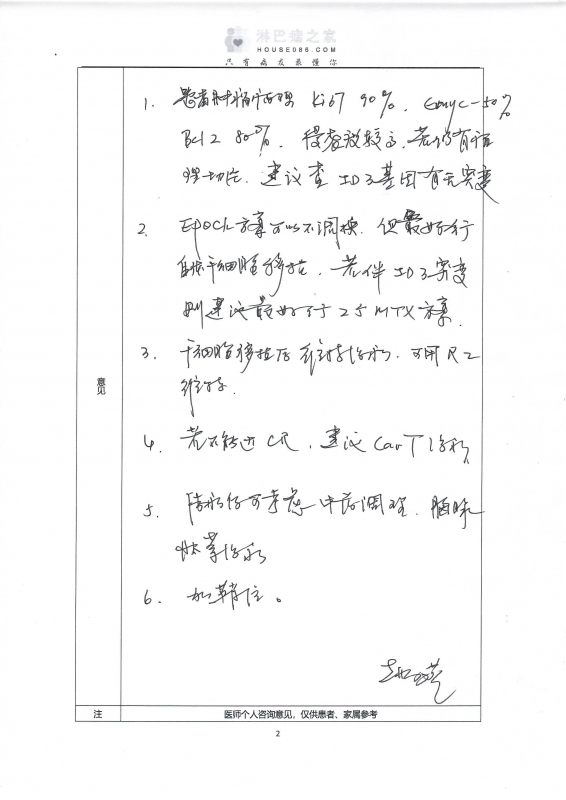 淋巴瘤之家
HOUSE086.COM
只有病友最懂你
1. 患者肿瘤病理 Ki67 90%, Cmyc-50%
Bcl2 80%, 侵袭较高, 若仍有病
理切片, 建议查 ID3基因有无突变
2. EPOCH方案可以不调换, 但最好行
自体干细胞移植, 若伴 ID3突变
则建议最好 MTX方案
3. 干细胞移植后维持治疗, 可用R2
维持.
4. 若不能进CR, 建议CarT治疗
5. 可考虑中药调理,
肽 治疗
6. 加
意见
注
医师个人咨询意见,仅供患者、家属参考
2